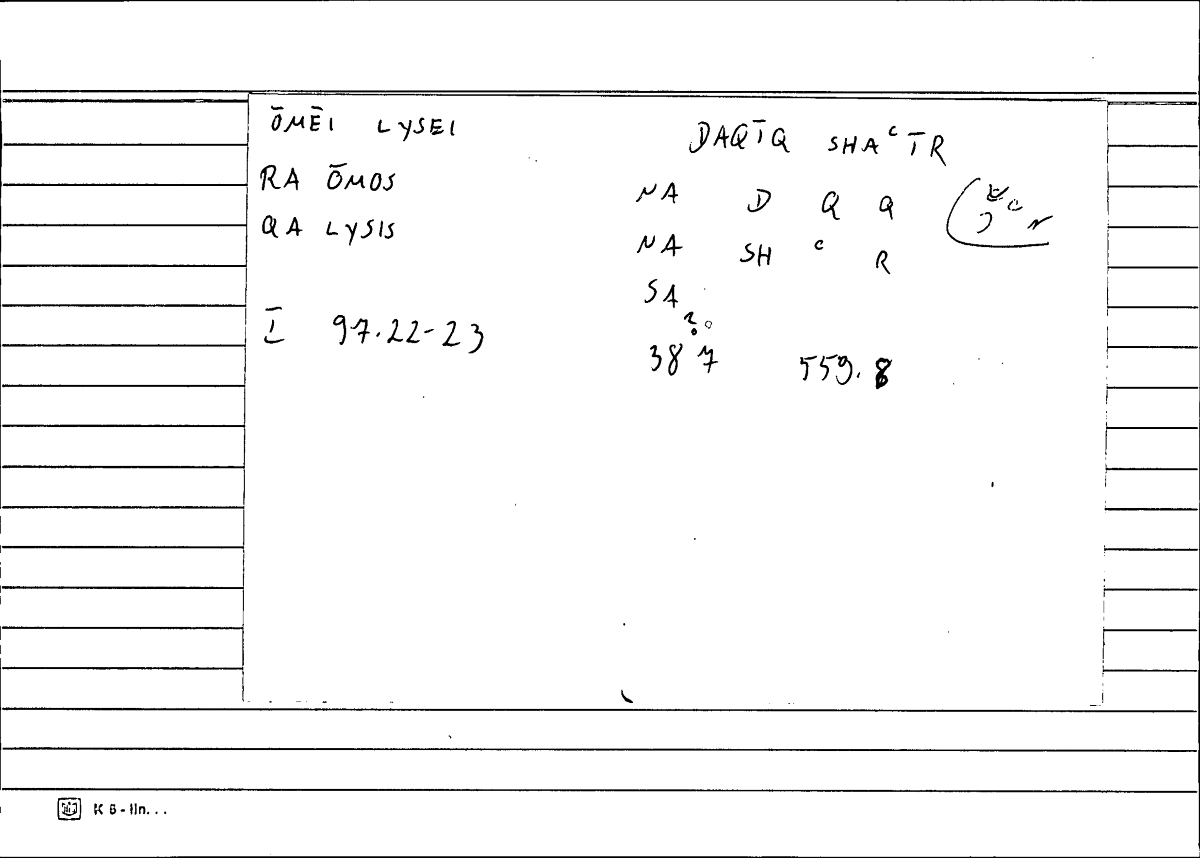 ŌMĒI LYSEI
RA ŌMOS
QA LYSIS
Ī 97.22-23
DAQĪQ SHAᶜĪR
NA D Q Q
NA SH ᶜ R
SA
?
387 559.8
K 6